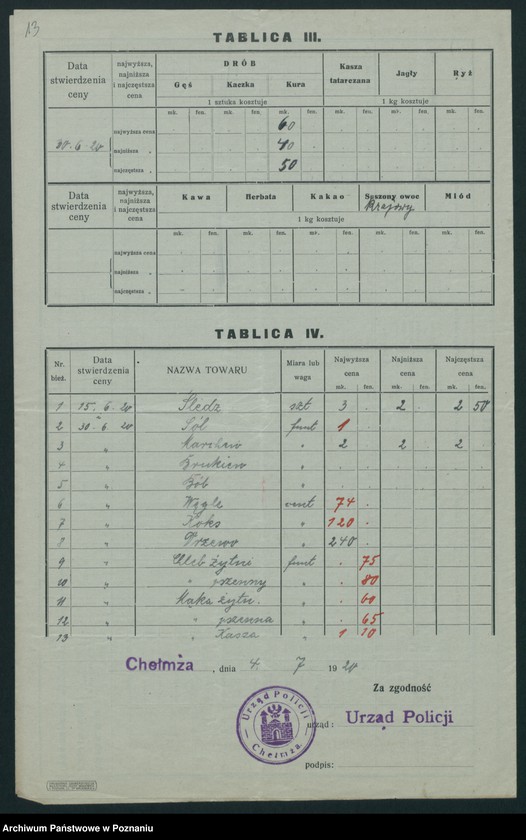 13
TABLICA III.
Data stwierdzenia ceny | najwyższa, najniższa i najczęstsza cena | DRÓB | Kasza tatarczana | Jagły | Ryż
Gęś | Kaczka | Kura
1 sztuka kosztuje | 1 kg kosztuje
mk. | fen. | mk. | fen. | mk. | fen. | mk. | fen. | mk. | fen. | mk. | fen.
najwyższa cena | 60
30. 6. 20 | najniższa „ | 40
najczęstsza „ | 50
Data stwierdzenia ceny | najwyższa, najniższa i najczęstsza cena | Kawa | Herbata | Kakao | Suszony owoc krajowy | Miód
1 kg kosztuje
mk. | fen. | mk. | fen. | mk. | fen. | mk. | fen. | mk. | fen.
najwyższa cena
najniższa „
najczęstsza „
TABLICA IV.
Nr. bież. | Data stwierdzenia ceny | NAZWA TOWARU | Miara lub waga | Najwyższa cena | Najniższa cena | Najczęstsza cena
mk. | fen. | mk. | fen. | mk. | fen.
1 | 15. 6. 20 | Śledz | szt | 3 . | 2 . | 2 50
2 | 30. 6. 20 | Sól | funt | 1 .
3 | „ | Marchew | „ | 2 | 2 | 2
4 | „ | Brukiew | „
5 | „ | Bób | „
6 | „ | Węgle | cent | 74 .
7 | „ | Koks | „ | 120 .
8 | „ | Drzewo | „ | 240 .
9 | „ | Chleb żytni | funt | . 75
10 | „ | „ pszenny | „ | . 80
11 | „ | Mąka żytn. | „ | . 60
12 | „ | „ pszenna | „ | . 65
13 | „ | Kasza | „ | 1 10
Chełmża , dnia 4. 7 1920
Za zgodność
urząd : Urząd Policji
Urząd Policji
Chełmża.
podpis:
Archiwum Państwowe w Poznaniu